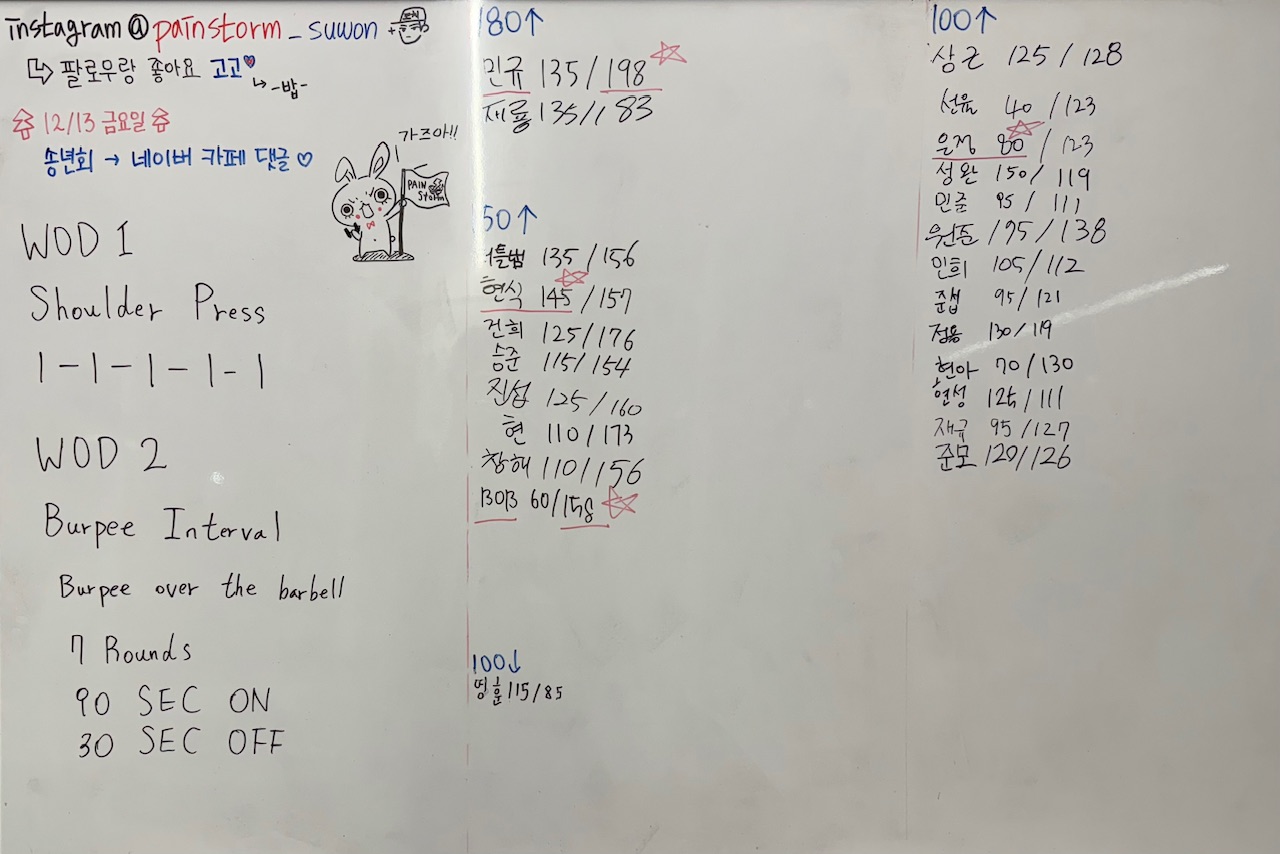 instagram@painstorm_suwon
팔로우랑 좋아요 고고
-밥-
12/13 금요일
송년회 → 네이버 카페 댓글 ♡
가즈아!!
PAIN
Storm
WOD 1
Shoulder Press
1-1-1-1-1
WOD 2
Burpee Interval
Burpee over the barbell
7 Rounds
90 SEC ON
30 SEC OFF
180↑
민규 135/198
재룡 135/183
50↑
135/156
현식 145/157
건희 125/176
승준 115/154
진섭 125/160
현 110/173
창해 110/156
BOB 60/158
100↓
명훈 115/85
100↑
상근 125/128
선율 40/123
은정 80/123
성완 150/119
민준 95/111
원준 195/138
민희 105/112
준섭 95/121
정용 130/119
현아 70/130
현성 125/111
재규 95/127
준모 120/126